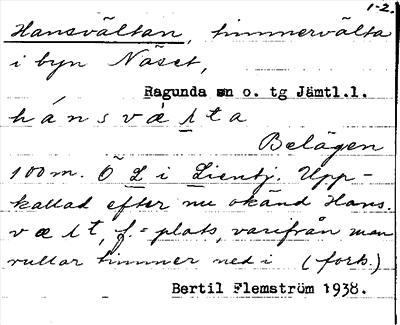 1-2.
Hansvältan, timmervälta
i byn Näset,
Ragunda sn o. tg Jämtl.l.
hánsvæ̀lta
Belägen
100 m. Ö L i Lientj. Upp-
kallad efter nu okänd Hans.
vælt, f. = plats, varifrån man
rullar timmer ned i (fork.)
Bertil Flemström 1938.